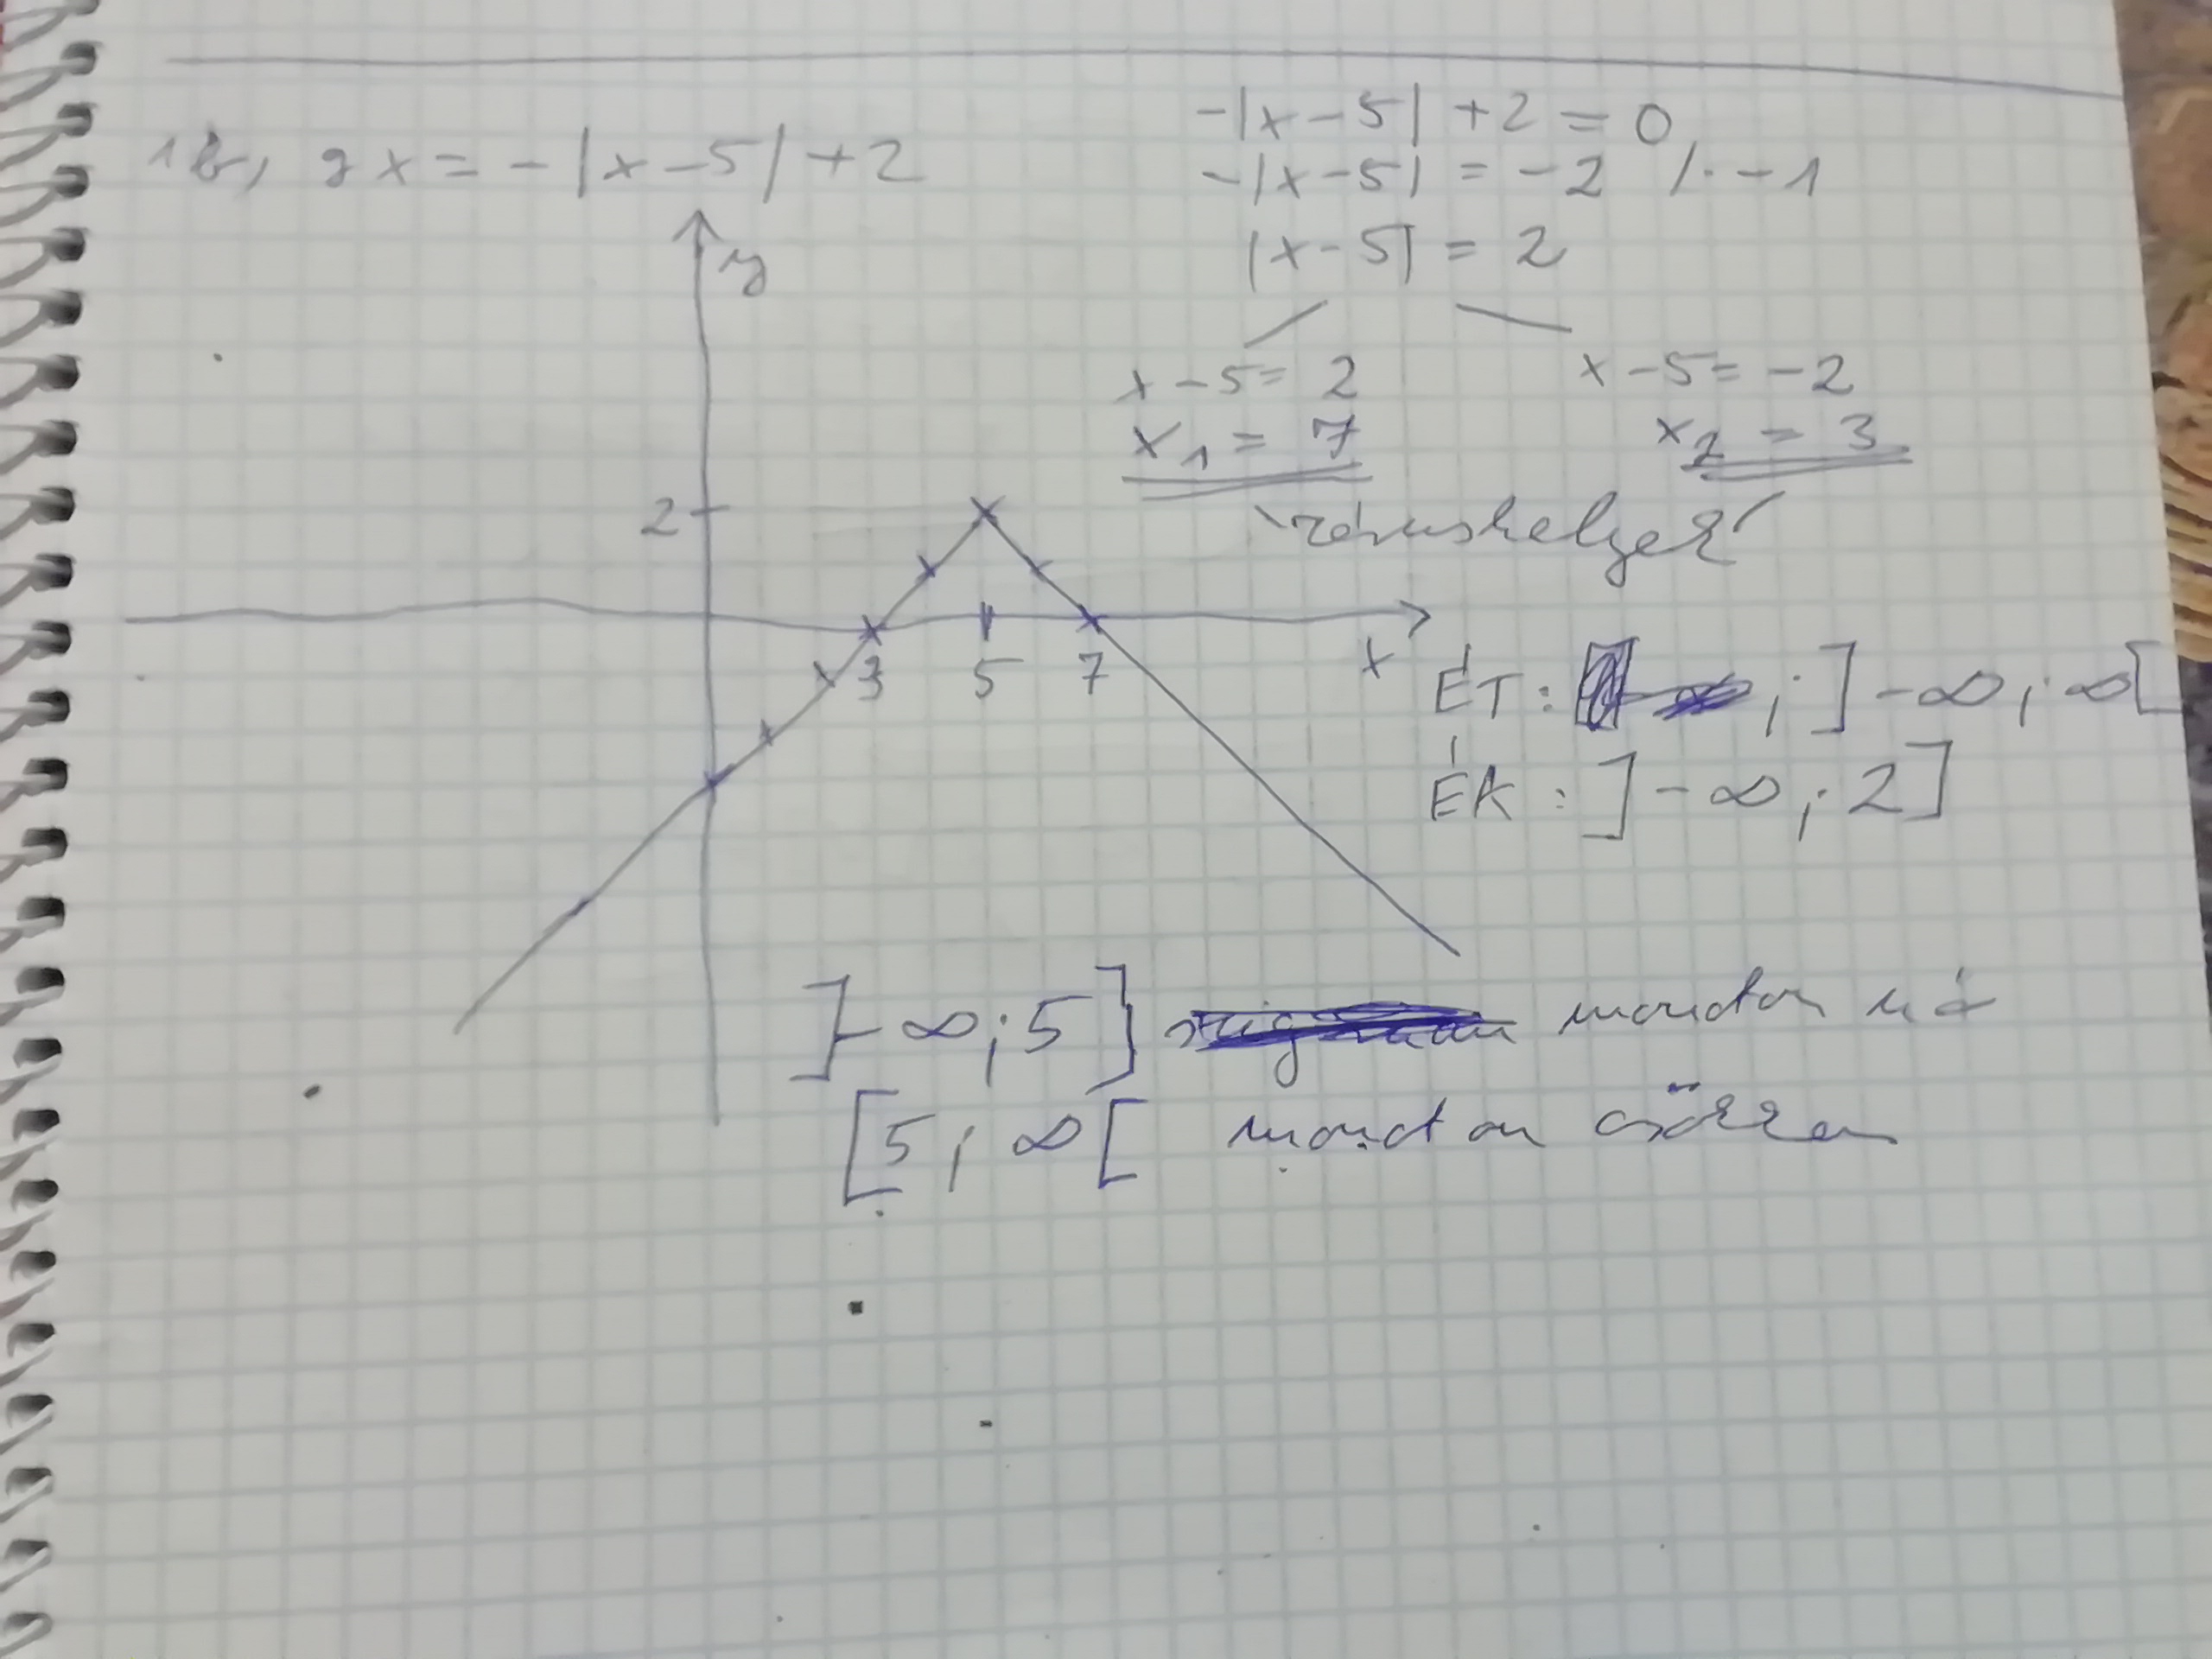 1b, gx = -|x-5| +2
-|x-5| +2 = 0
-|x-5| = -2 /· -1
|x-5| = 2
x-5= 2
x-5= -2
x1 = 7
x2 = 3
zérushelyek
y
2
3 5 7
x
ÉT: ; ]-∞; ∞[
ÉK: ]-∞; 2]
]-∞; 5] monoton nő
[5; ∞[ monoton csökken